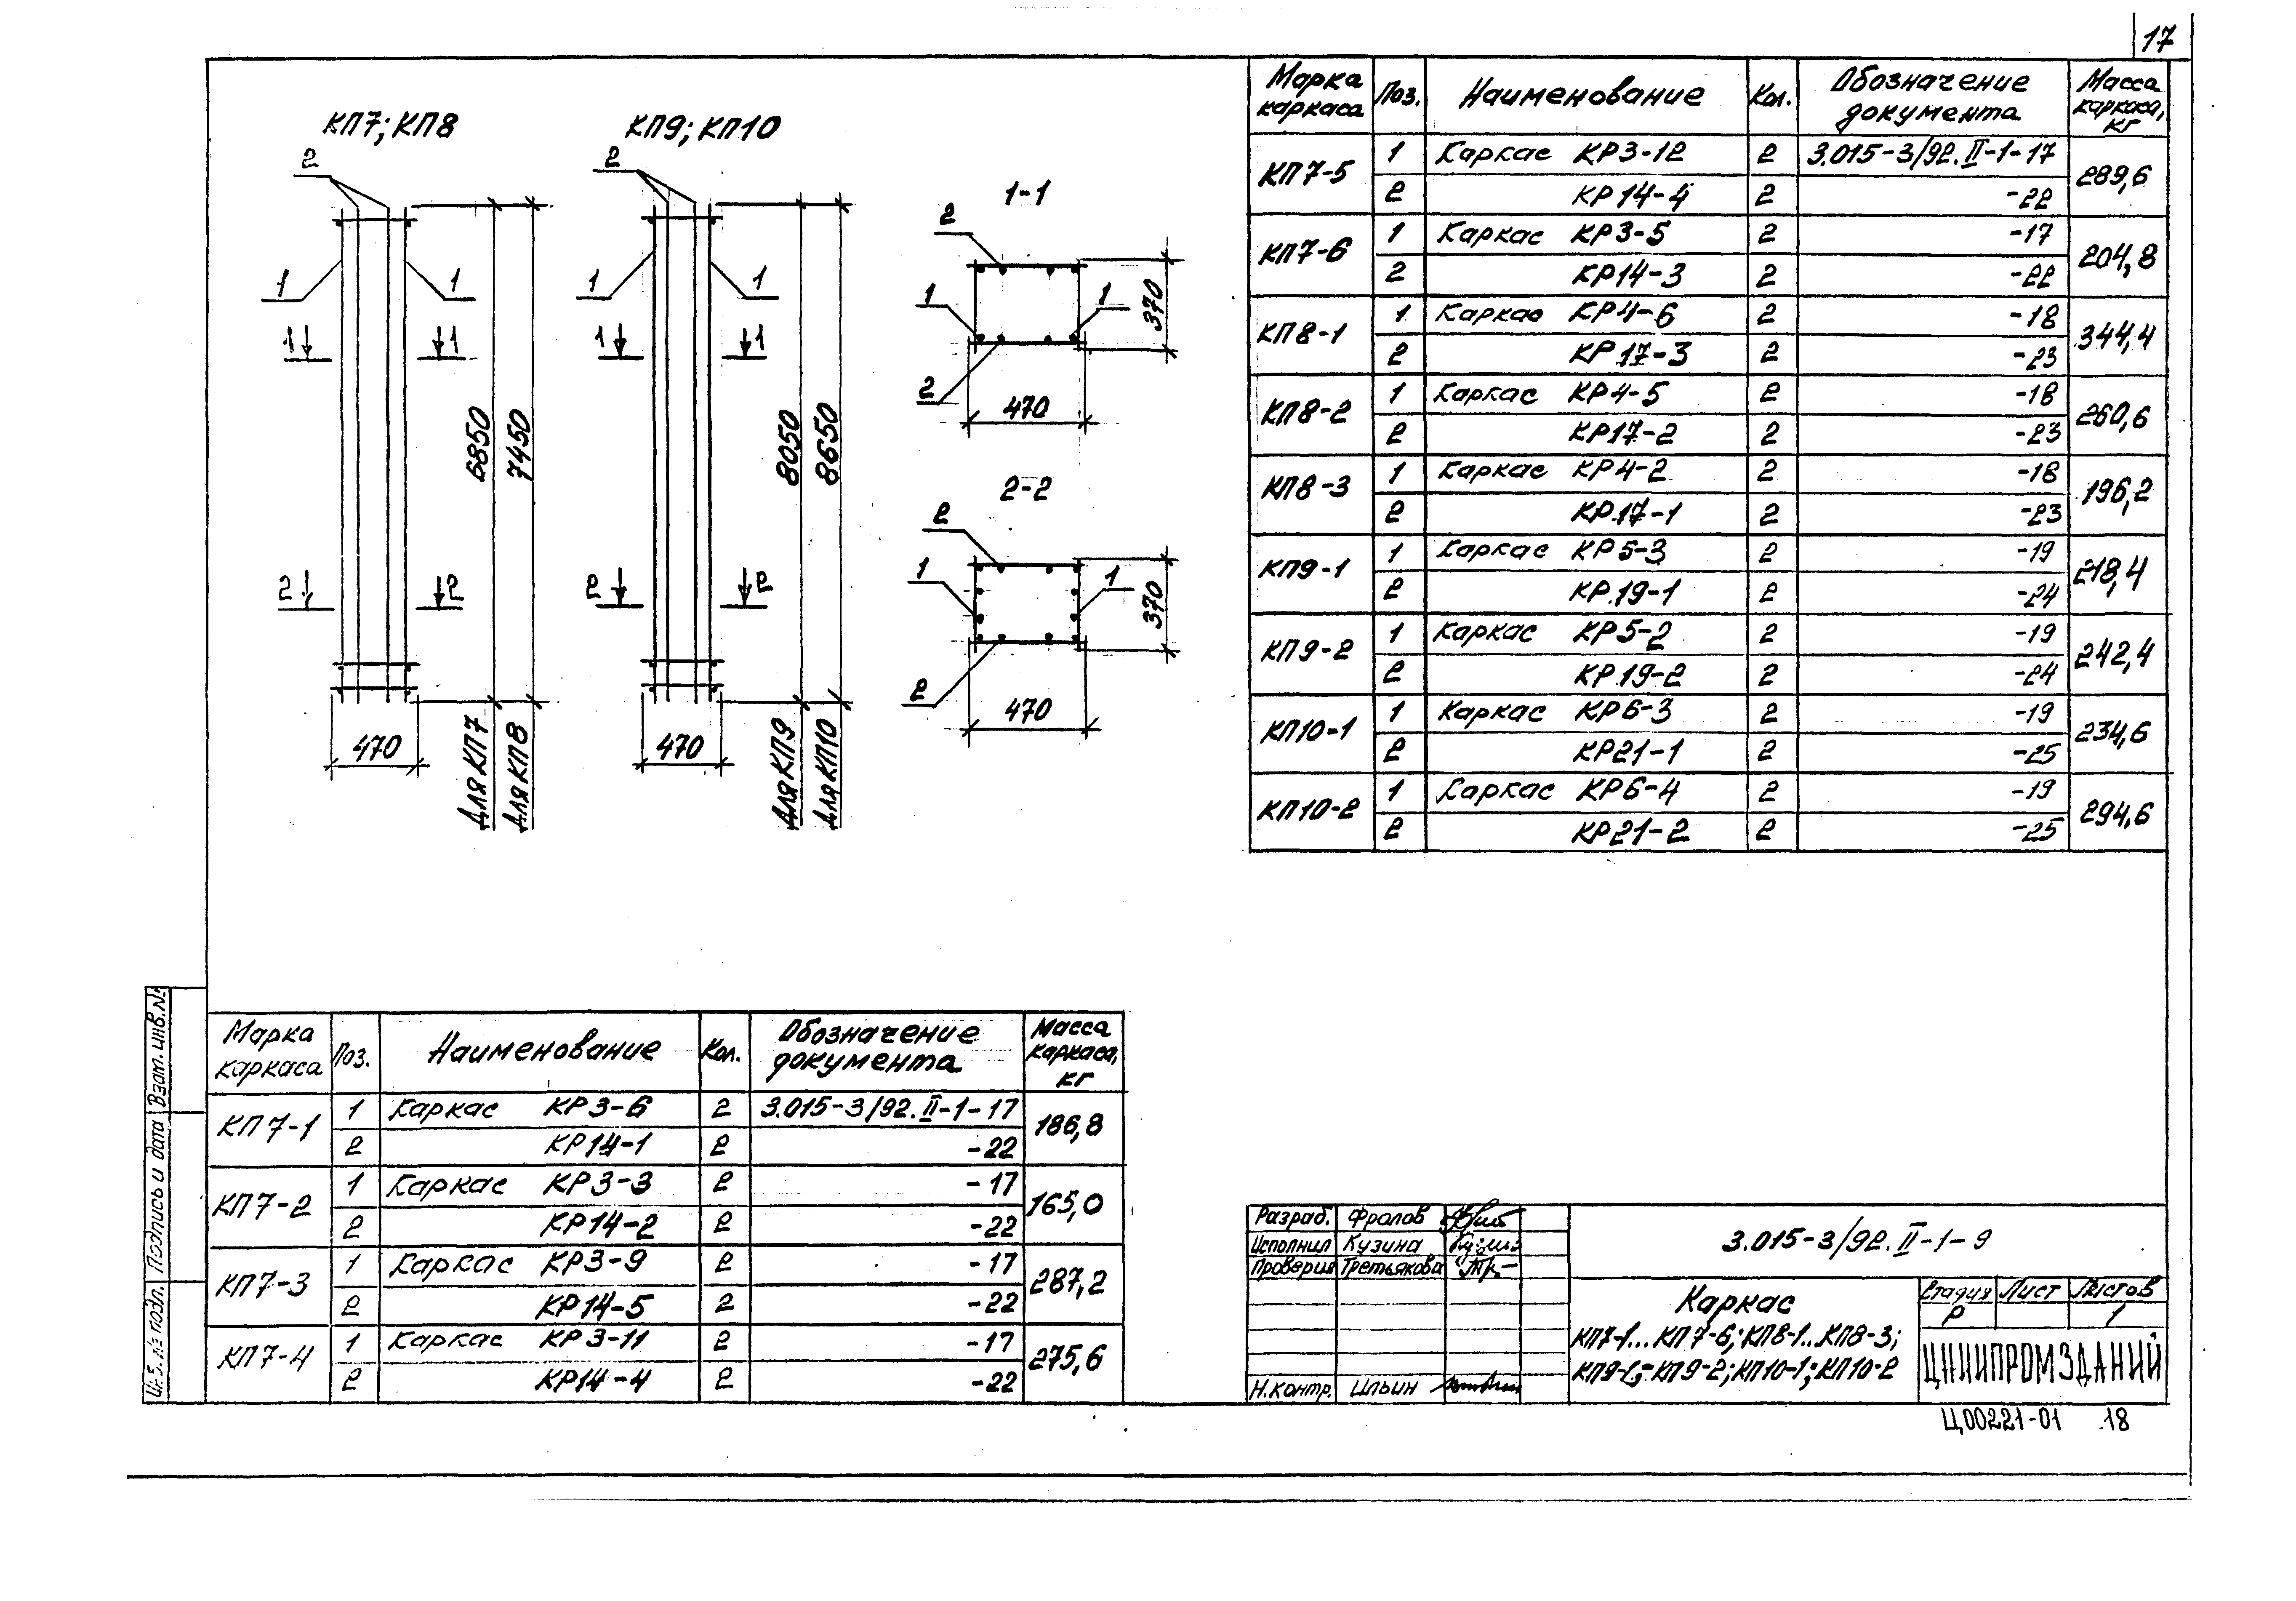 17
КП7; КП8
КП9; КП10
2
2
1
1
1
1
1
1
1
1
2
2
2
2
6850
7450
8050
8650
470
470
Для КП7
Для КП8
Для КП9
Для КП10
1-1
2
1
1
2
370
470
2-2
2
1
1
2
370
470
Марка каркаса Поз. Наименование Кол. Обозначение документа Масса каркаса, кг
КП7-5 1 Каркас КР3-12 2 3.015-3/92.II-1-17 289,6
2 КР14-4 2 -22
КП7-6 1 Каркас КР3-5 2 -17 204,8
2 КР14-3 2 -22
КП8-1 1 Каркас КР4-6 2 -18 344,4
2 КР17-3 2 -23
КП8-2 1 Каркас КР4-5 2 -18 260,6
2 КР17-2 2 -23
КП8-3 1 Каркас КР4-2 2 -18 196,2
2 КР.17-1 2 -23
КП9-1 1 Каркас КР5-3 2 -19 218,4
2 КР.19-1 2 -24
КП9-2 1 Каркас КР5-2 2 -19 242,4
2 КР19-2 2 -24
КП10-1 1 Каркас КР6-3 2 -19 234,6
2 КР21-1 2 -25
КП10-2 1 Каркас КР6-4 2 -19 294,6
2 КР21-2 2 -25
Марка каркаса Поз. Наименование Кол. Обозначение документа Масса каркаса, кг
КП7-1 1 Каркас КР3-6 2 3.015-3/92.II-1-17 186,8
2 КР14-1 2 -22
КП7-2 1 Каркас КР3-3 2 -17 165,0
2 КР14-2 2 -22
КП7-3 1 Каркас КР3-9 2 -17 287,2
2 КР14-5 2 -22
КП7-4 1 Каркас КР3-11 2 -17 275,6
2 КР14-4 2 -22
Взам. инв. №
Подпись и дата
№ подл.
Разраб. Фролов
Исполнил Кузина
Проверил Третьякова
Н.контр. Ильин
3.015-3/92.II-1-9
Каркас
КП7-1...КП7-6; КП8-1..КП8-3;
КП9-1; КП9-2; КП10-1; КП10-2
Стадия Лист Листов
Р 1
ЦНИИПРОМЗДАНИЙ
Ц00221-01 18